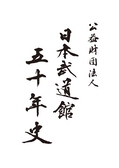 公益財団法人
日本武道館
五十年史